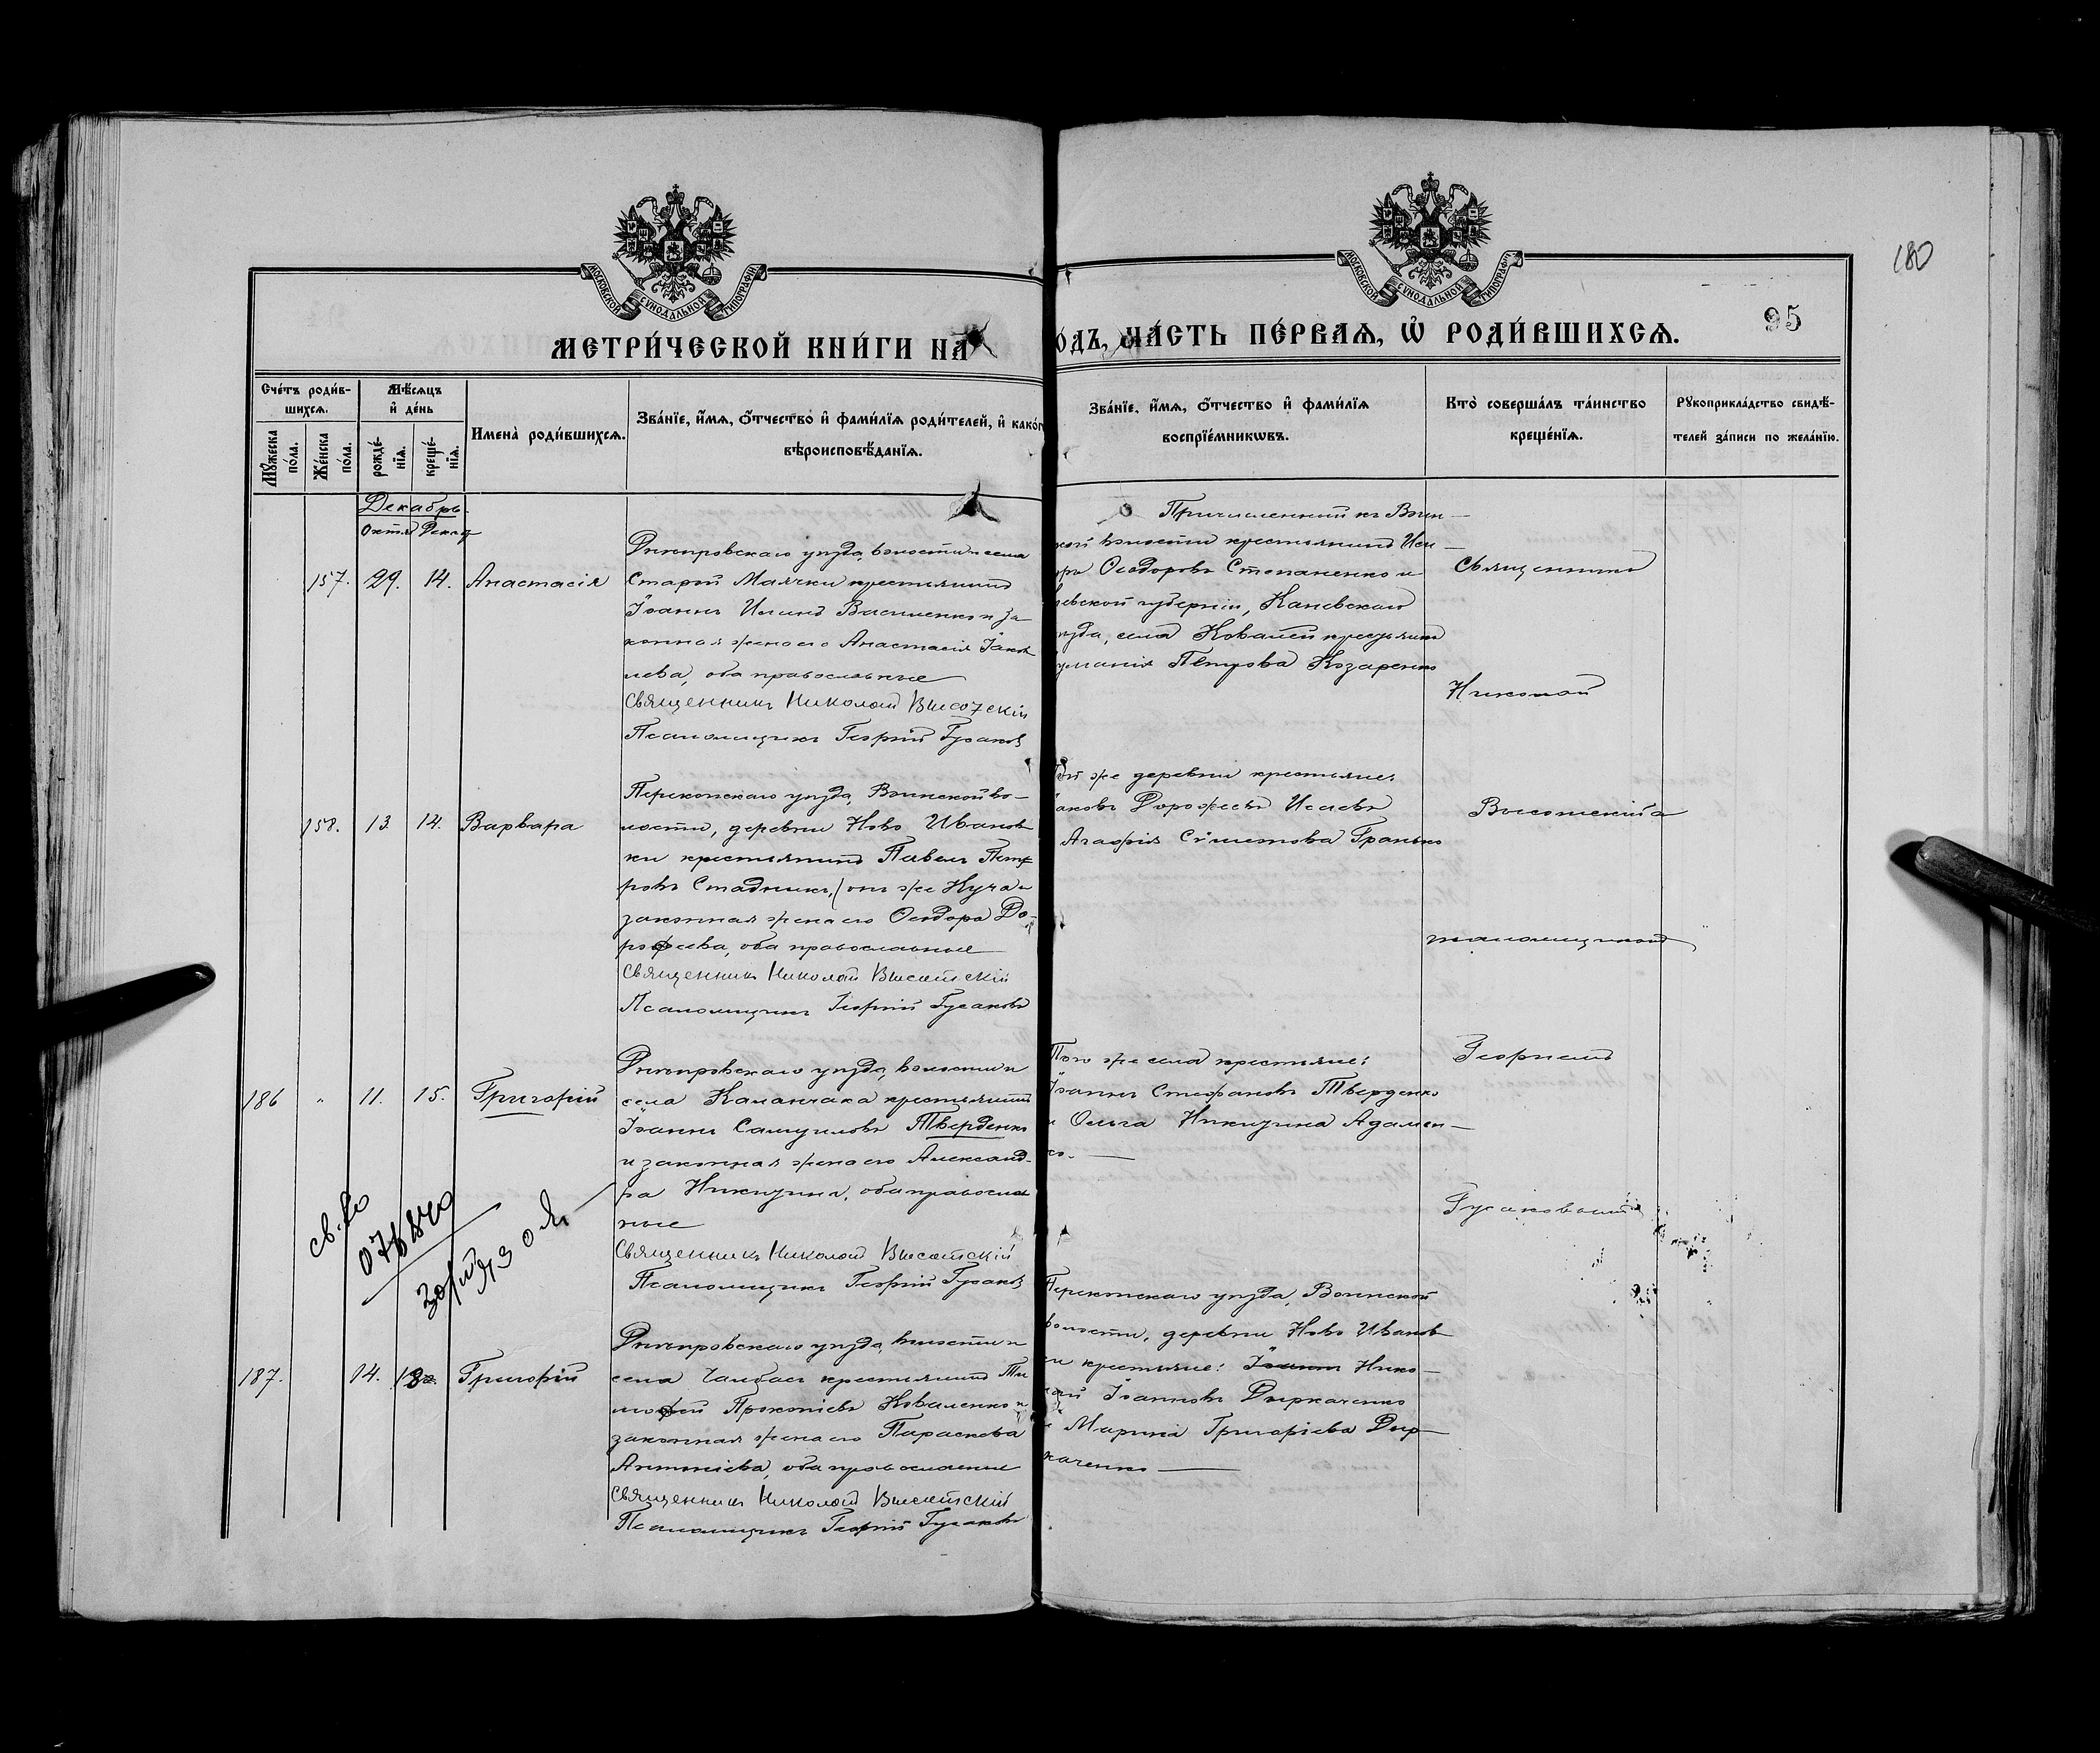 180
95
МОСКОВСКОЙ СѴНОДАЛЬНОЙ ТИПОГРАФІИ
МОСКОВСКОЙ СѴНОДАЛЬНОЙ ТИПОГРАФІИ
МЕТРИ́ЧЕСКОЙ КНИ́ГИ НА
ОДЪ, ЧА́СТЬ ПЕ́РВАѦ, Ѡ РОДИ́ВШИХСѦ.
Сче́тъ роди́в-
шихсѧ.
Мꙋ́жеска по́ла.
Же́нска по́ла.
Мѣ́сѧцъ
и҆ де́нь
рожде́-
нїѧ.
креще́-
нїѧ.
Имена̀ роди́вшихсѧ.
Зва́нїе, и҆́мѧ, ѻ҆́тчество и҆ фами́лїѧ роди́телей, и҆ како́г
вѣроисповѣ́данїѧ.
Зва́нїе, и҆́мѧ, ѻ҆́тчество и҆ фами́лїѧ
воспрїе́мникѡвъ.
Кто̀ соверша́лъ та́инство
креще́нїѧ.
Рꙋкоприкла́дство свидѣ́-
телей за́писи по жела́нїю.
Декабрь
157. 29. 14. Анастасія
Днѣпровскаго уѣзда, волости и села
Старой Маячки крестьянинъ
Іоаннъ Ильинъ Василенко и за
конная жена его Анастасія Іаков
лева, оба православные
Священникъ Николай Высотскій
Псаломщикъ Георгій Гусаковъ
Причисленный къ Воин—
ской волости крестьянинъ Иси
оръ Ѳеодоровъ Степаненко и
іевской губерніи, Каневскаго
уѣзда, села Ковалей
Петрова Козаренко
158. 13. 14. Варвара
Перекопскаго уѣзда, Воинской во—
лости, деревни Ново Иванов
ки крестьянинъ Павелъ Пет
ровъ Стадникъ, (онъ же Куча и
законная жена его Ѳеодора До-
рофеева, оба православные
Священникъ Николай Высотскій
Псаломщикъ Георгій Гусаковъ
Той же деревни крестьяне:
аковъ Дорофеевъ Исаевъ
Агафія Гранько
186 " 11. 15. Григорій
Днѣпровскаго уѣзда, волости и
села Каланчака крестьянинъ
Іоаннъ Самуиловъ Тверденко
и законная жена его Александ-
ра Никитина, оба православ
ные
Священникъ Николай Высотскій
Псаломщикъ Георгій Гусаковъ
Того же села крестьяне:
Іоаннъ Стефановъ Тверденко
и Ольга Никитина Адамен—
ко. —
187. 14. Григорій
Днѣпровскаго уѣзда, волости и
села Чалбасъ крестьянинъ Ти
мофей Прокопіевъ Коваленко и
законная жена его Параскева
Антоніева, оба православные
Священникъ Николай Высотскій
Псаломщикъ Георгій Гусаковъ
Перекопскаго уѣзда, Воинской
волости, деревни Ново Иванов
ки крестьяне: Іоаннъ Нико—
лай Іоанновъ Диркаченко
и Марина Григоріева Дир—
каченко —
Священникъ
Николай
Высотскій съ
псаломщикомъ
Георгіемъ
Гусаковымъ